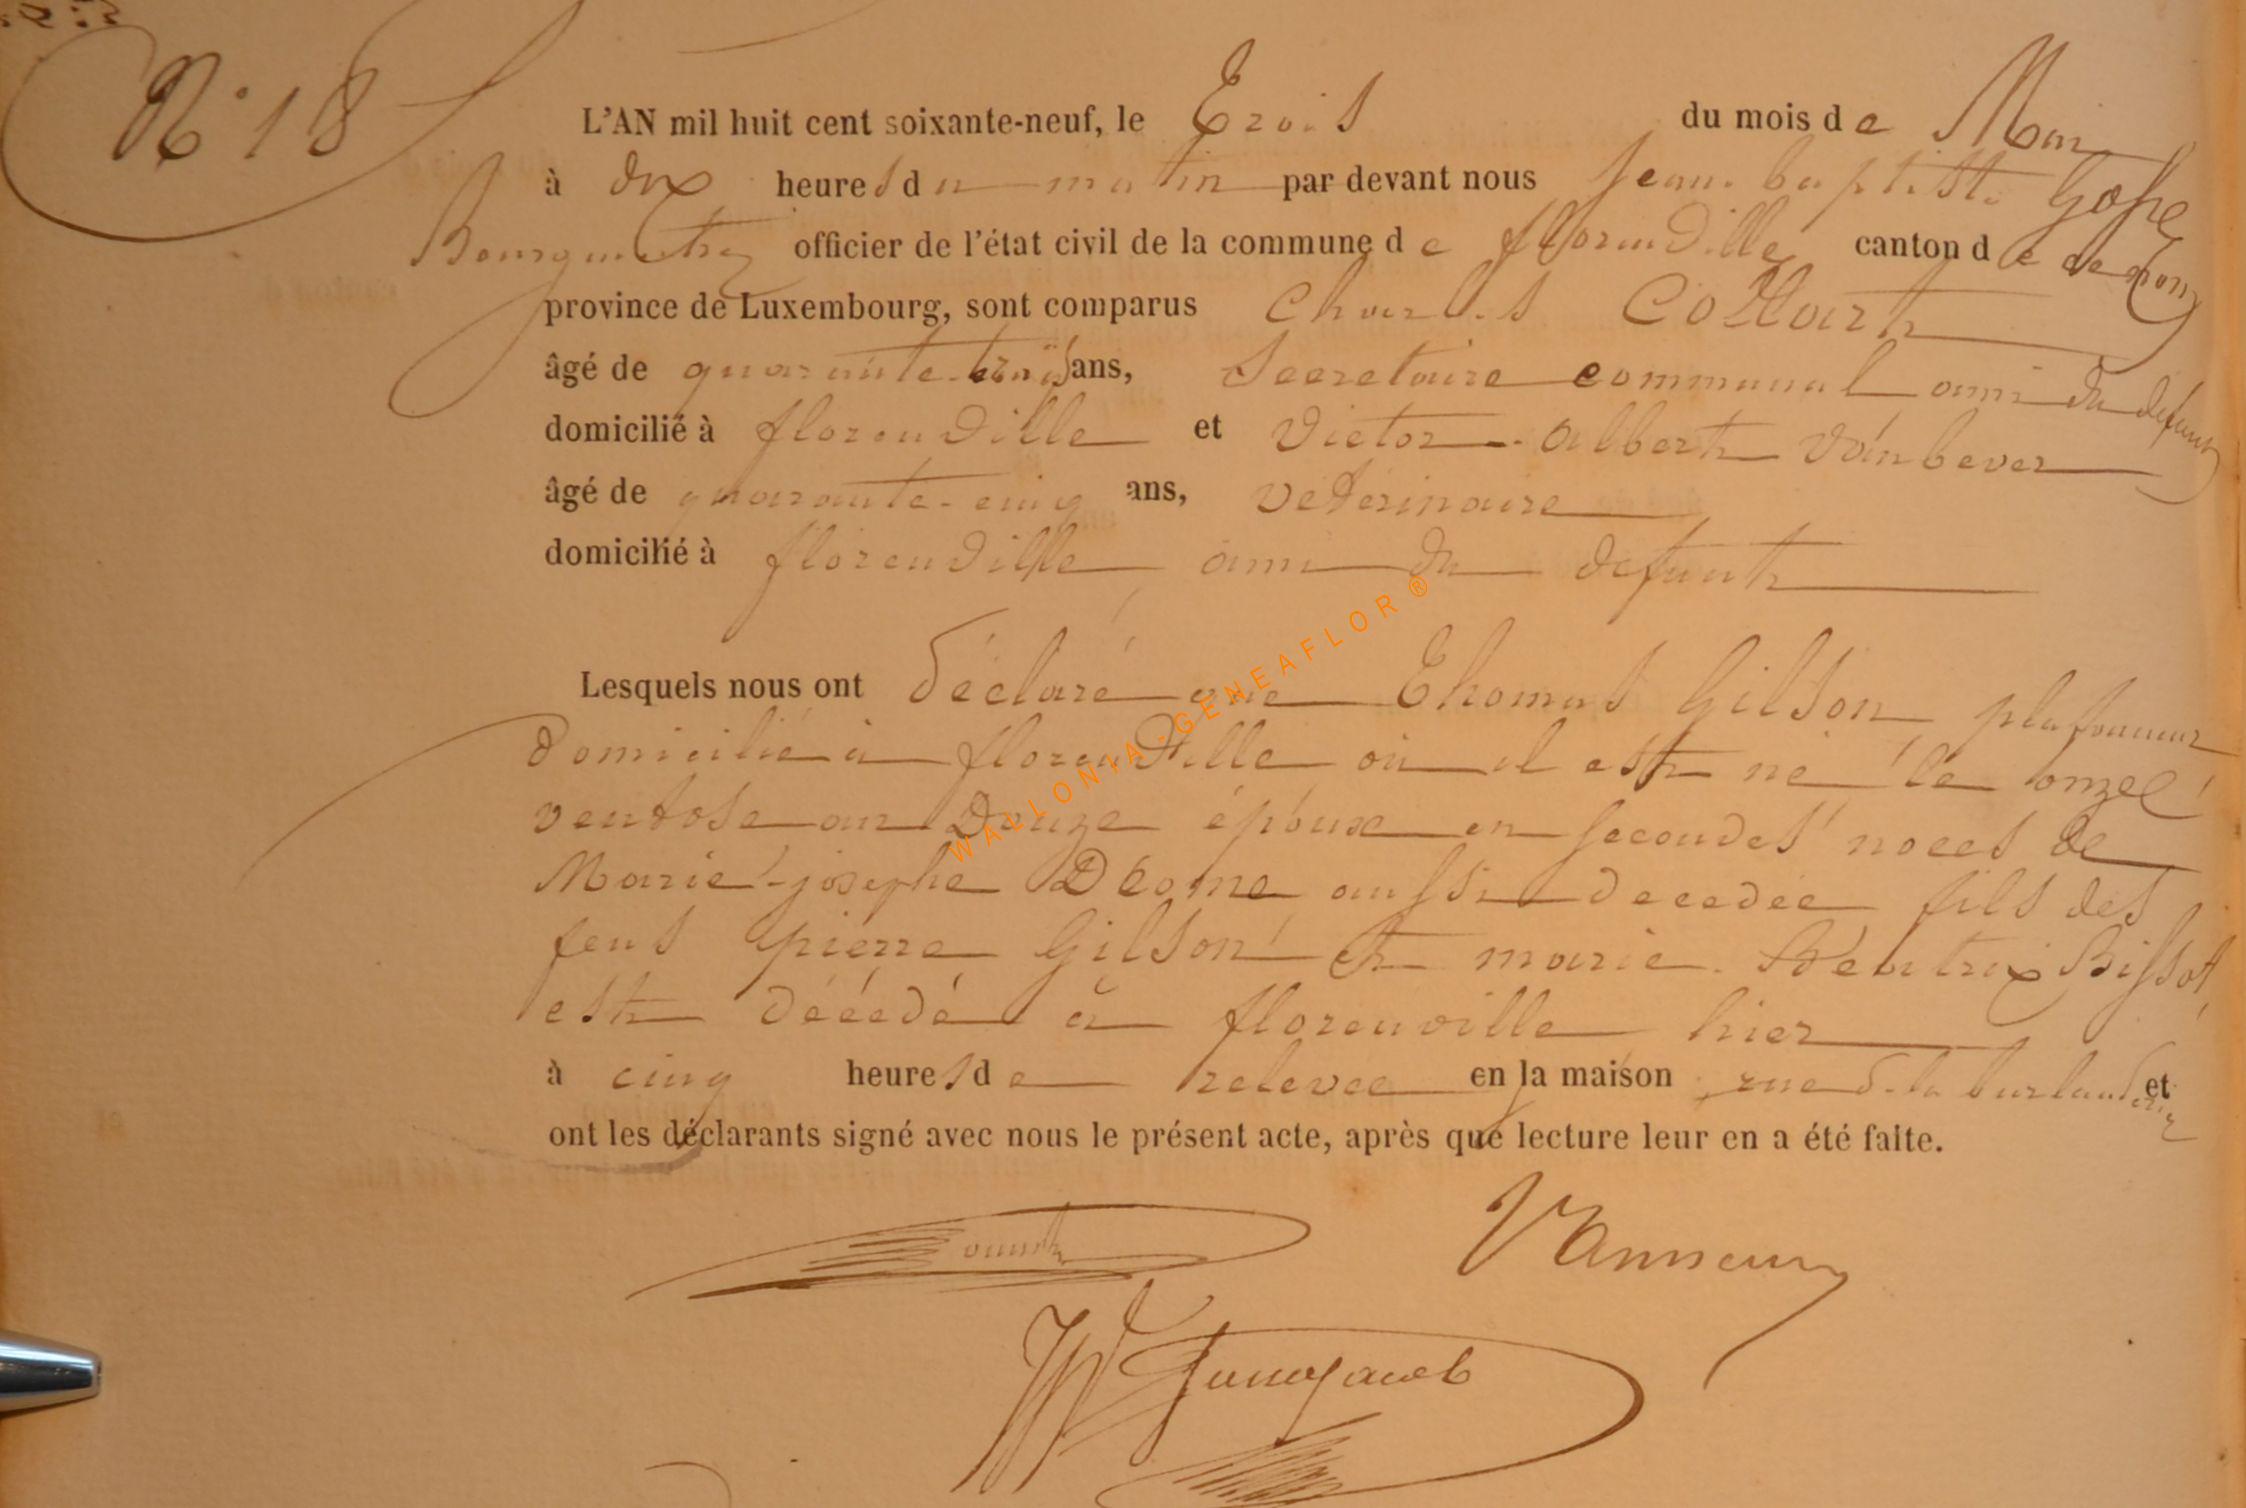 N° 18
L'AN mil huit cent soixante-neuf, le Trois du mois de Mai
à dix heures du matin par devant nous jean baptiste Gofse
Bourgmestre officier de l'état civil de la commune de florenville canton de
province de Luxembourg, sont comparus Charles Collart
âgé de quarante-trois ans, Secretaire communal ami du defunt
domicilié à florenville et Victor-Albert Vanbever
âgé de quarante-cinq ans, vétérinaire
domicilié à florenville ami du defunt
Lesquels nous ont déclaré que Thomas Gilson plafonneur
domicilié à florenville où il est né le onze
ventose an Douze époux en secondes noces de
Marie-josephe aussi decedée fils des
feus pierre Gilson et marie Béatrix Bissot,
est décédé à florenville hier
à cinq heures de relevée en la maison rue de la et
ont les déclarants signé avec nous le présent acte, après que lecture leur en a été faite.
WALLONIA-GENEAFLOR ®